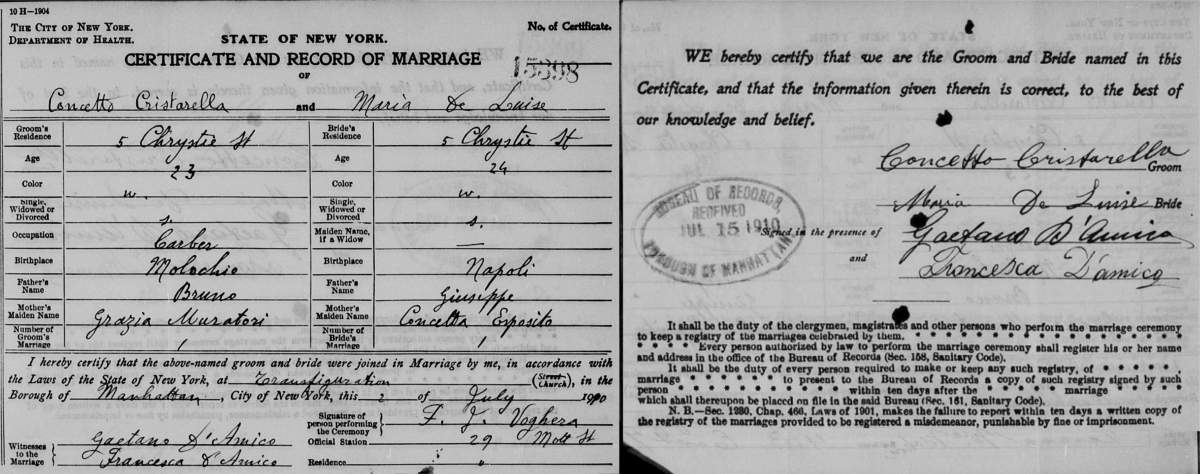 10 H—1904
THE CITY OF NEW YORK.
DEPARTMENT OF HEALTH.
No. of Certificate.
STATE OF NEW YORK.
CERTIFICATE AND RECORD OF MARRIAGE
15398
OF
Concetto Cristarella and Maria De Luise
Groom's Residence 5 Chrystie St Bride's Residence 5 Chrystie St
Age 23 Age 24
Color w. Color w.
Single, Widowed or Divorced s. Single, Widowed or Divorced s.
Occupation Barber Maiden Name, if a Widow —
Birthplace Molochio Birthplace Napoli
Father's Name Bruno Father's Name Giuseppe
Mother's Maiden Name Grazia Muratori Mother's Maiden Name Concetta Esposito
Number of Groom's Marriage 1 Number of Bride's Marriage 1
I hereby certify that the above-named groom and bride were joined in Marriage by me, in accordance with
the Laws of the State of New York, at Transfiguration (Street or Church), in the
Borough of Manhattan, City of New York, this 2 of July 1910
Signature of person performing the Ceremony F. J. Voghera
Official Station 29 Mott St
Witnesses to the Marriage Gaetano D'Amico
Francesca D'Amico
Residence "
WE hereby certify that we are the Groom and Bride named in this
Certificate, and that the information given therein is correct, to the best of
our knowledge and belief.
Concetto Cristarella Groom
Maria De Luise Bride
BUREAU OF RECORDS,
RECEIVED
JUL 15 1910
BOROUGH OF MANHATTAN
Signed in the presence of Gaetano D'Amico
and Francesca D'amico
It shall be the duty of the clergymen, magistrates and other persons who perform the marriage ceremony
to keep a registry of the marriages celebrated by them. * * * * * * * * * * * * * *
* * * * Every person authorized by law to perform the marriage ceremony shall register his or her name
and address in the office of the Bureau of Records (Sec. 158, Sanitary Code).
It shall be the duty of every person required to make or keep any such registry, of * * * * *,
marriage * * * * * to present to the Bureau of Records a copy of such registry signed by such
person * * * * * * * * * * within ten days after the marriage * * * * * * * *
which shall thereupon be placed on file in the said Bureau (Sec. 161, Sanitary Code).
N. B.—Sec. 1280, Chap. 466, Laws of 1901, makes the failure to report within ten days a written copy of
the registry of the marriages provided to be registered a misdemeanor, punishable by fine or imprisonment.